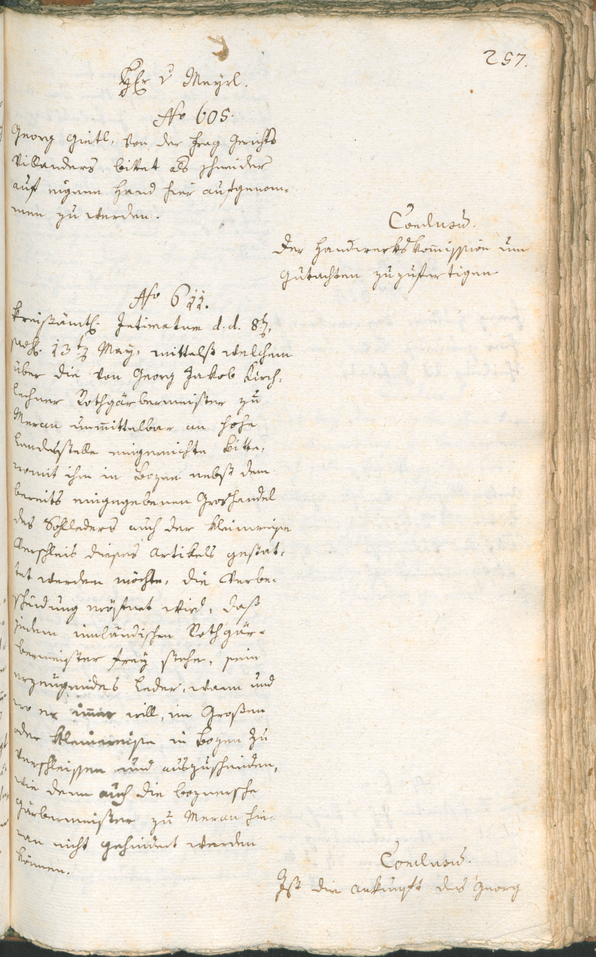 257.
Hr v Meyrl.
No 605.
Georg Gietl, von der Frag Gerichts
Villanders bittet als Schneider
auf eigene Hand hier aufgenom¬
men zu werden.
Conclusum.
Der Handwerkskommission um
Gutachten zuzufertigen
No 611.
Kreisämtl. Intimatum d.d. 8t,
13t May, mittelst welchem
über die von Georg Jakob Kirch¬
lechner Rothgärbermeister zu
Meran unmittelbar an hohe
Landesstelle eingereichte Bitte,
womit ihm in Bozen nebst dem
bereits eingegebenen Großhandel
des Sohlleders auch der kleinweise
Verschleis dieses Artikels gestat¬
tet werden möchte, die Verbe¬
scheidung eröfnet wird, daß
jedem innländischen Rothgär¬
bermeister frey stehe, sein
erzeugendes Leder, wann und
wo er immer will, im Großen
oder kleinweise in Bozen zu
verschleissen und auszuschneiden,
wie denn auch die boznerische
Gärbermeister zu Meran hie¬
ran nicht gehindert werden
können.
Conclusum.
Ist die Ankunft des Georg